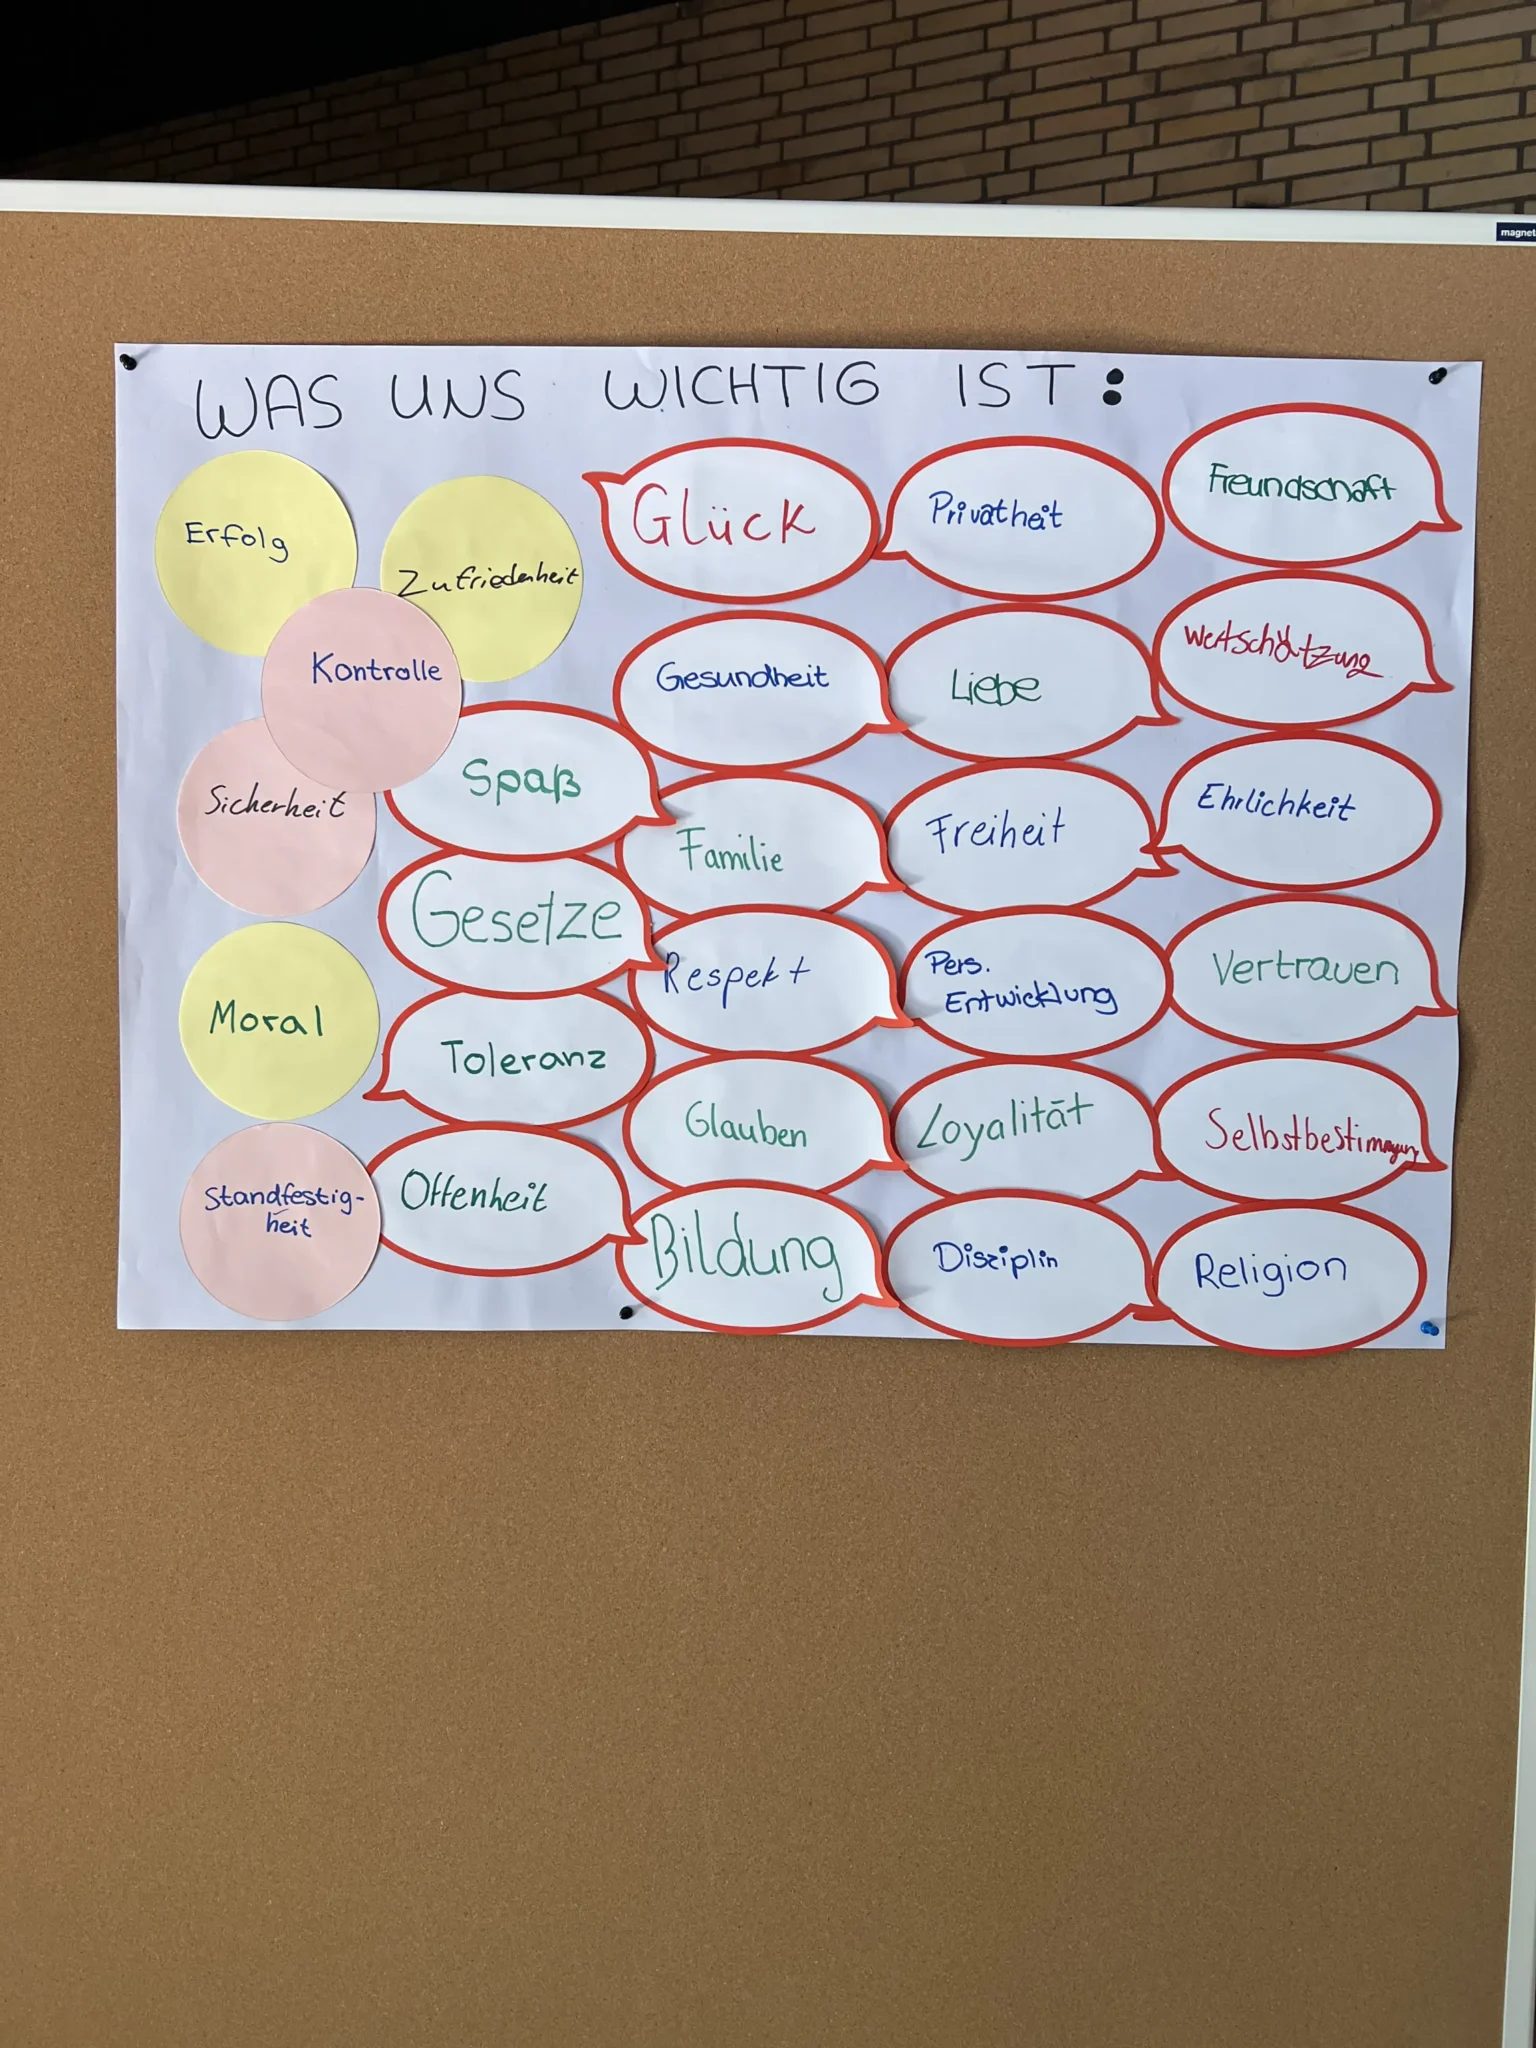 magnet
WAS UNS WICHTIG IST:
Erfolg
Zufriedenheit
Kontrolle
Sicherheit
Moral
Standfestig-
heit
Spaß
Gesetze
Toleranz
Offenheit
Glück
Gesundheit
Familie
Respekt
Glauben
Bildung
Privatheit
Liebe
Freiheit
Pers.
Entwicklung
Loyalität
Disziplin
Freundschaft
Wertschätzung
Ehrlichkeit
Vertrauen
Selbstbestimmung
Religion